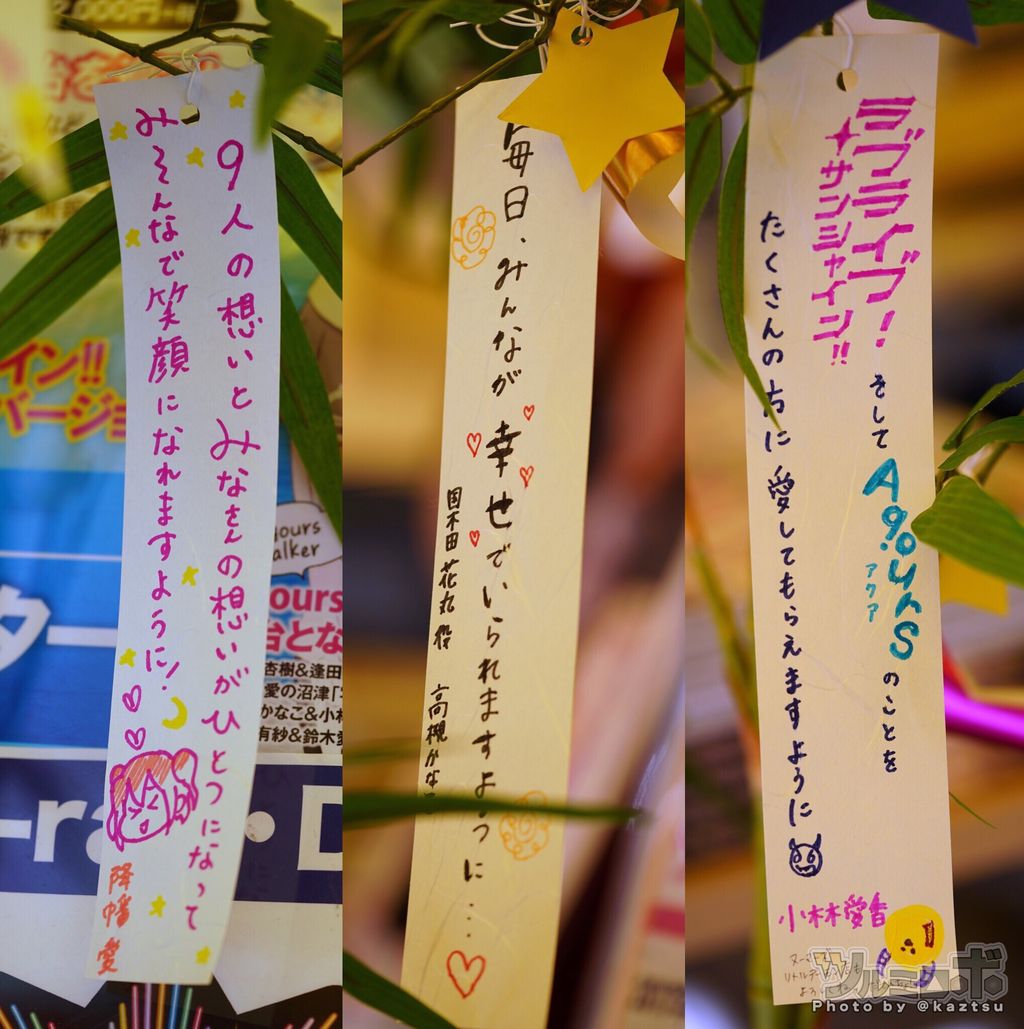 9人の想いとみなさんの想いがひとつになって
みーんなで笑顔になれますように!
降幡愛
2,000円
イン!!
バージョ
ター
ours
alker
ours
台とな
杏樹&逢田
愛の沼津
かなこ&小林
有紗&鈴木愛
毎日、みんなが幸せでいられますように…
国木田花丸役 高槻かなこ
ラブライブ!
サンシャイン!!
そして Aqours のことを
アクア
たくさんの方に愛してもらえますように
小林愛香
Photo by @kaztsu